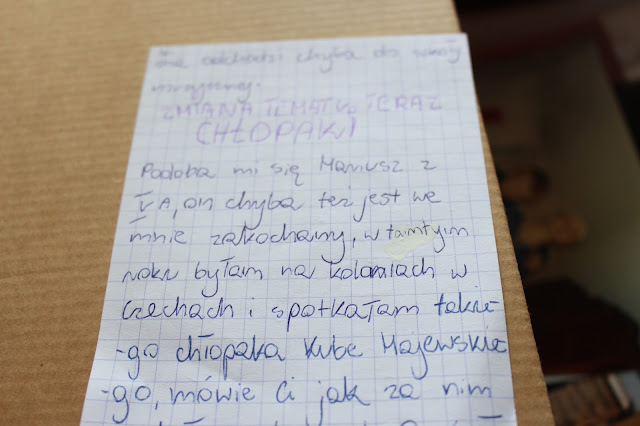 ona odchodzi chyba do szkoły
muzycznej.
ZMIANA TEMATU, TERAZ
CHŁOPAKI
Podoba mi się Mariusz z
VA, on chyba też jest we
mnie zakochany, w tamtyim
roku byłam na koloniach w
Czechach i spotkałam takie
-go chłopaka Kube Majewskie
-go, mówie Ci jak za nim